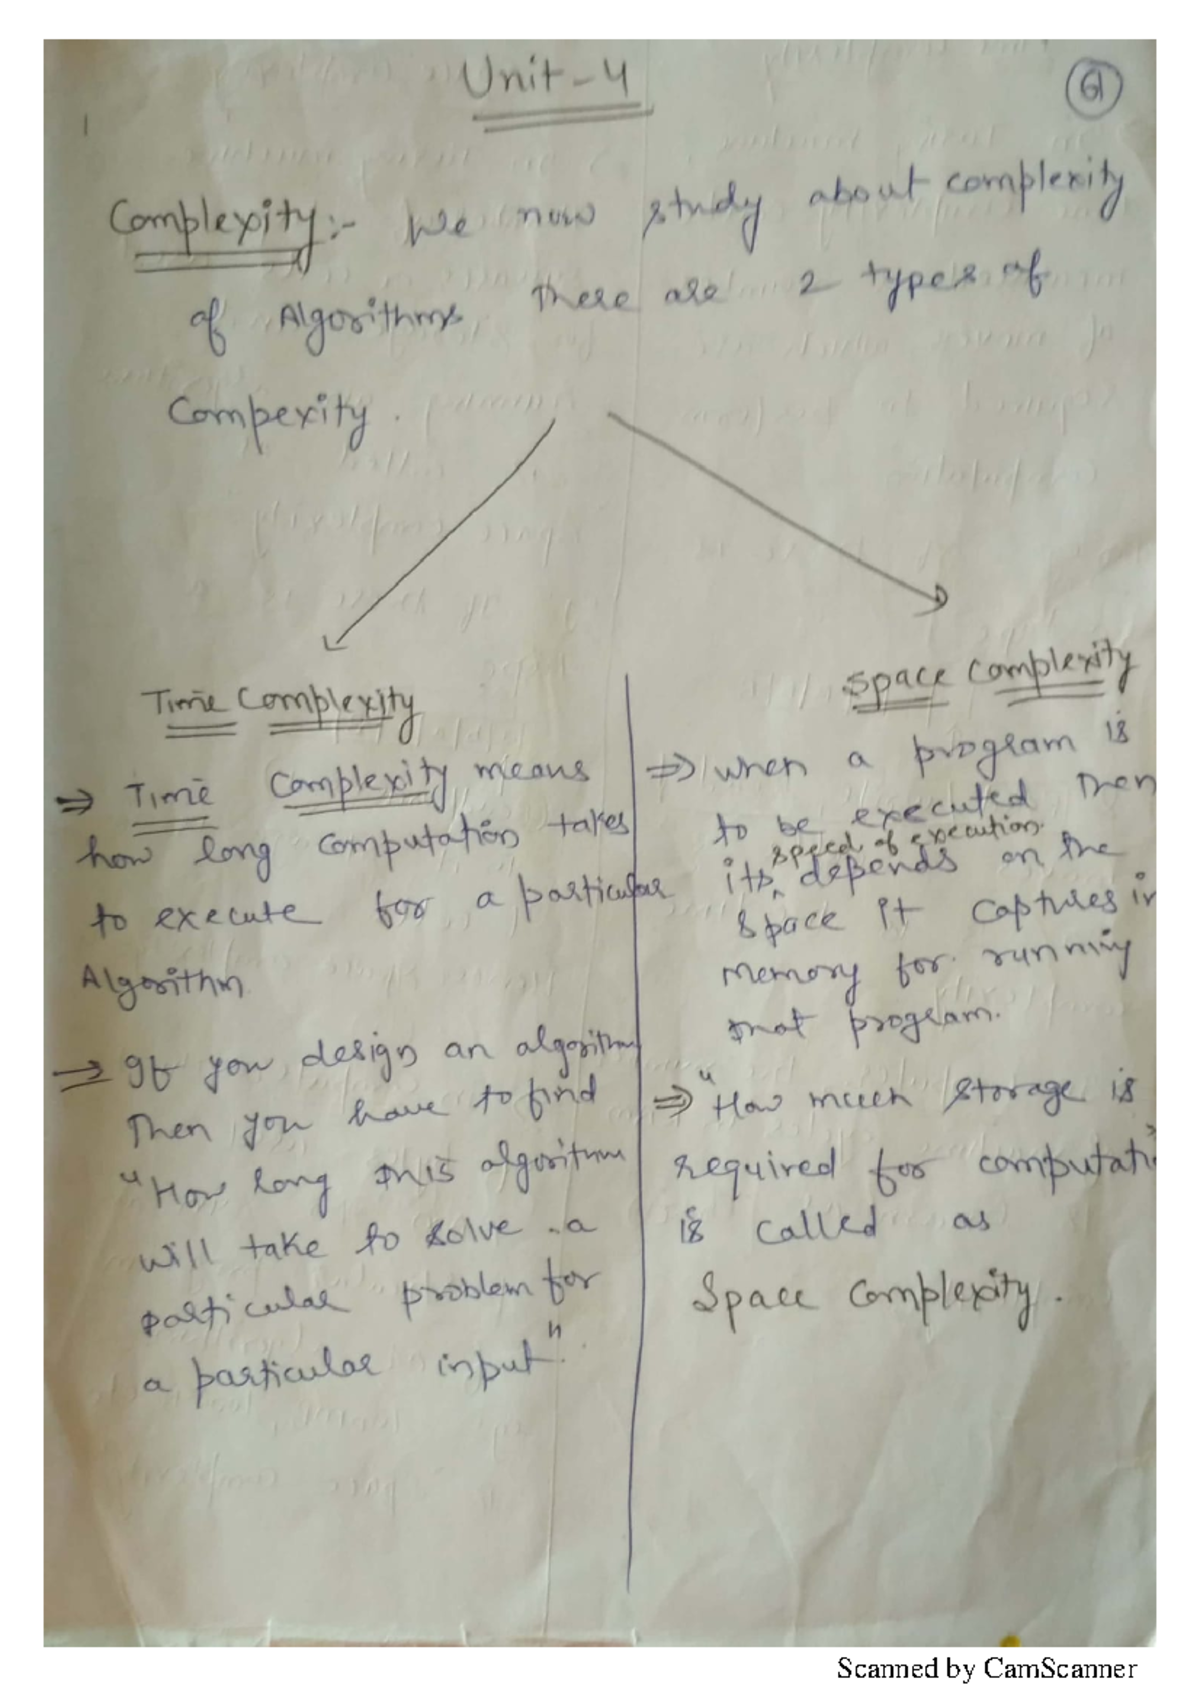 Unit-4
61
Complexity:- We now study about complexity
of Algorithms There are 2 types of
Compexity.
Time Complexity
⇒ Time Complexity means
how long computation takes
to execute for a particular
Algorithm
⇒ If you design an algorithm
Then you have to find
"How long this algorithm
will take to solve a
particular problem for
a particular input".
Space Complexity
⇒ when a program is
to be executed Then
speed of execution.
its ^ depends on the
space it captures in
memory for running
that program.
⇒ "How much storage is
required for computati"
is called as
Space Complexity.
Scanned by CamScanner